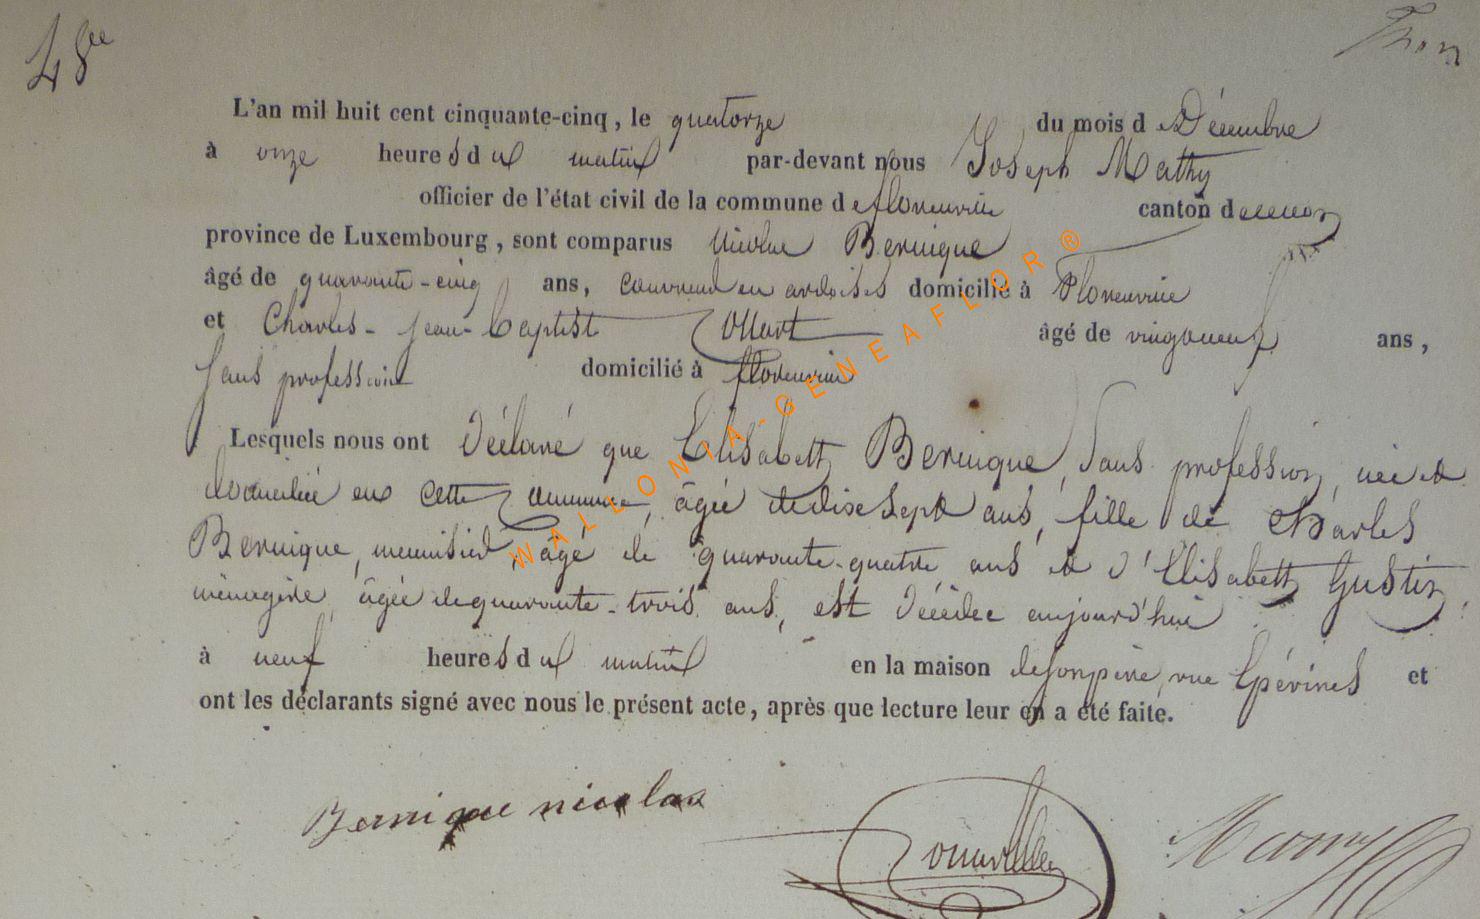 48ee
L'an mil huit cent cinquante-cinq, le quatorze du mois d e Décembre
à onze heure s d u matin par-devant nous Joseph Mathy
officier de l'état civil de la commune d e florenville canton d
province de Luxembourg, sont comparus Nicolas Bernique
âgé de quarante-cinq ans, couvreur en ardoises domicilié à Florenville
et Charles-jean-baptist âgé de ans,
sans profession domicilié à florenville
Lesquels nous ont déclaré que Elisabeth Bernique, sans profession, née et
domiciliée en cette commune, âgée de dix sept ans, fille de Charles
Bernique, menuisier, âgé de quarante-quatre ans et d'Elisabeth Gustin,
ménagère, âgée de quarante-trois ans, est décédée aujourd'hui
à neuf heure s d u matin en la maison de son père, rue Epérines et
ont les déclarants signé avec nous le présent acte, après que lecture leur en a été faite.
Bernique nicolas
WALLONIA-GENEAFLOR®